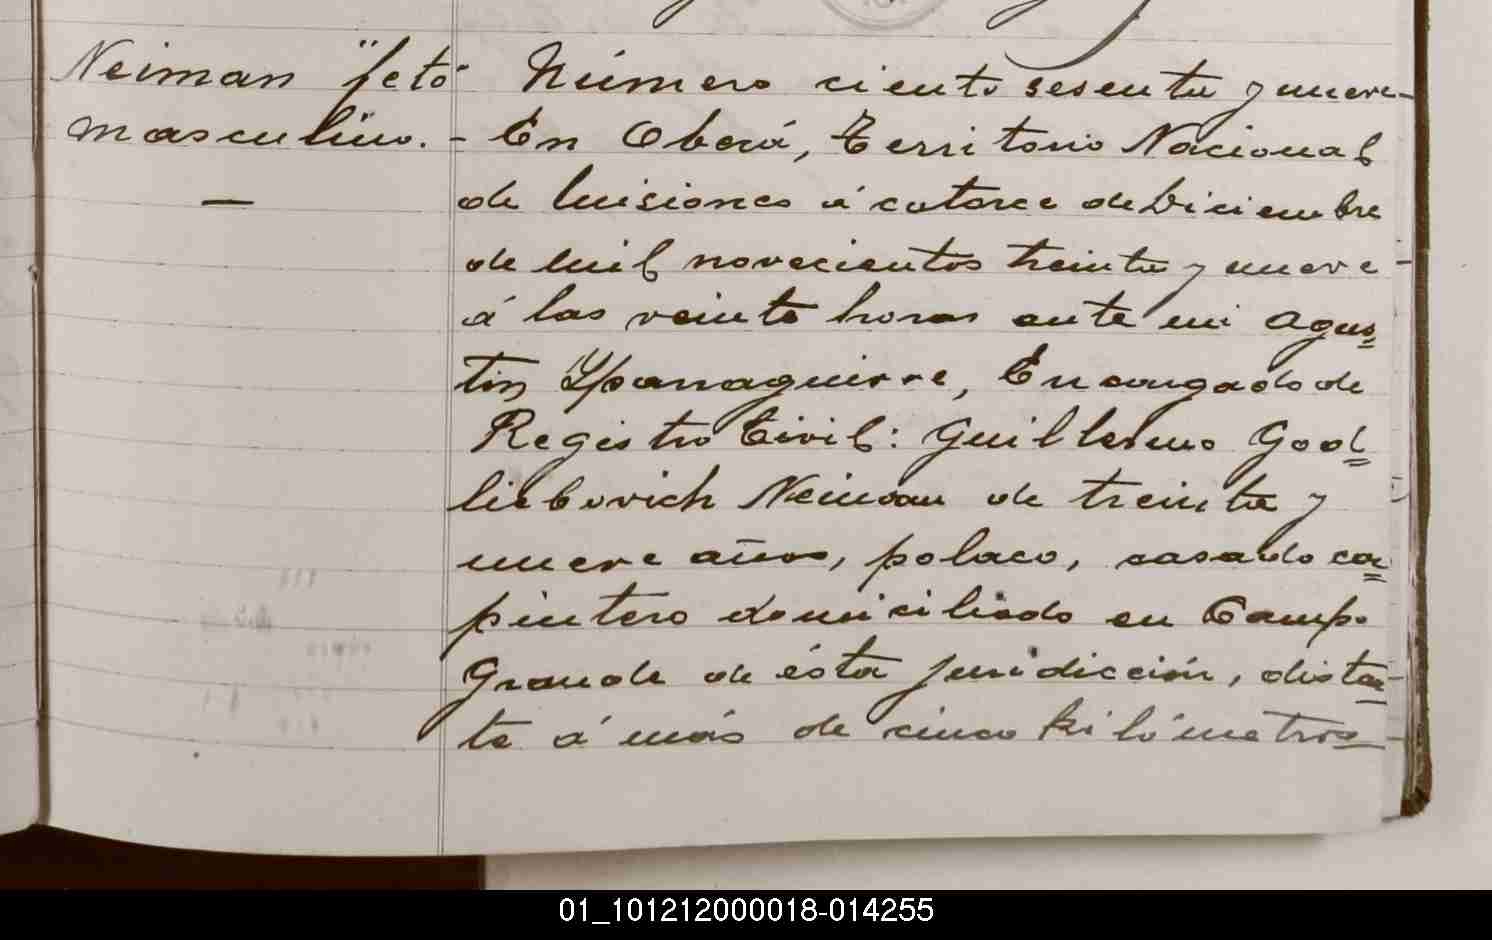 Neiman "feto
masculino.
—
Número ciento sesenta y nueve
- En Oberá, Territorio Nacional
de Misiones á catorce de Diciembre
de mil novecientos treinta y nueve
á las veinte horas ante mi Agus=
tin Yparraguirre, Encargado de
Registro Civil: Guillermo God=
liebovich Neiman de treinta y
nueve años, polaco, casado car=
pintero domiciliado en Campo
Grande de ésta juridicción, distan-
te á más de cinco kilómetros
01_101212000018-014255